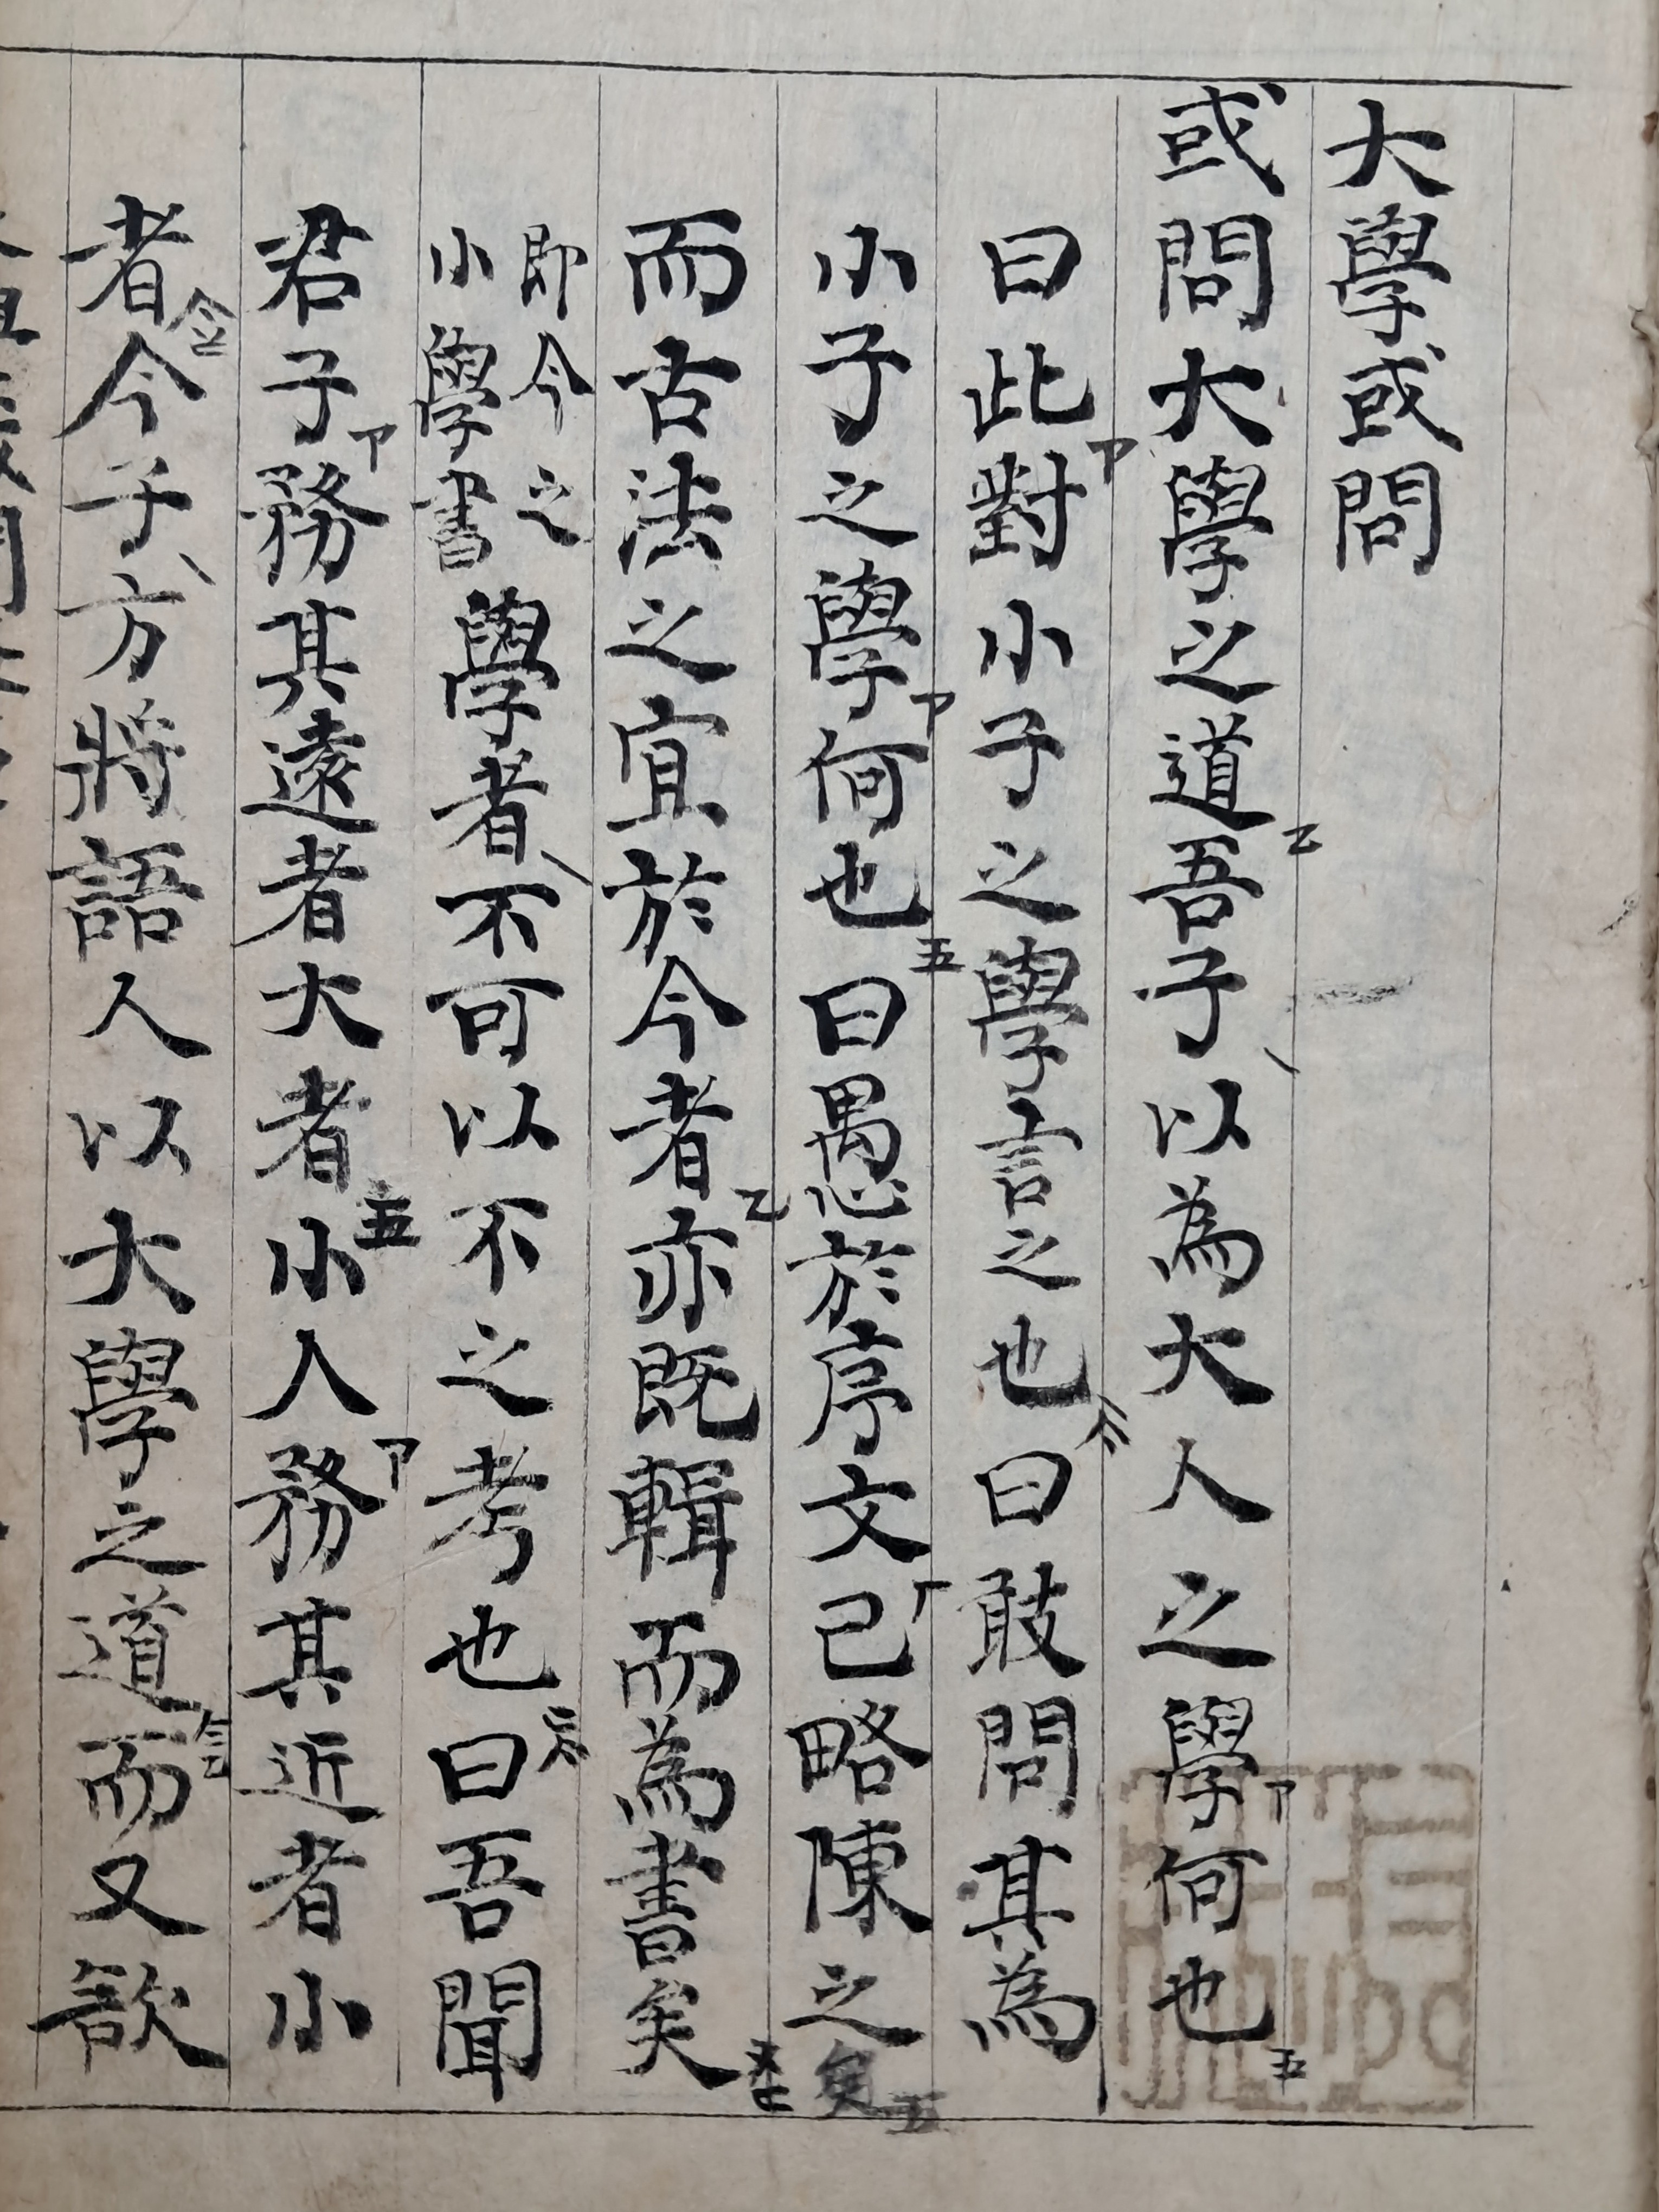 大學或問
或問大學之道吾子以為大人之學何也
曰此對小子之學言之也曰敢問其為
小子之學何也曰愚於序文已略陳之矣
而古法之宜於今者亦既輯而為書矣
即今之
小學書
學者不可以不之考也曰吾聞
君子務其遠者大者小人務其近者小
者今子方將語人以大學之道而又欲